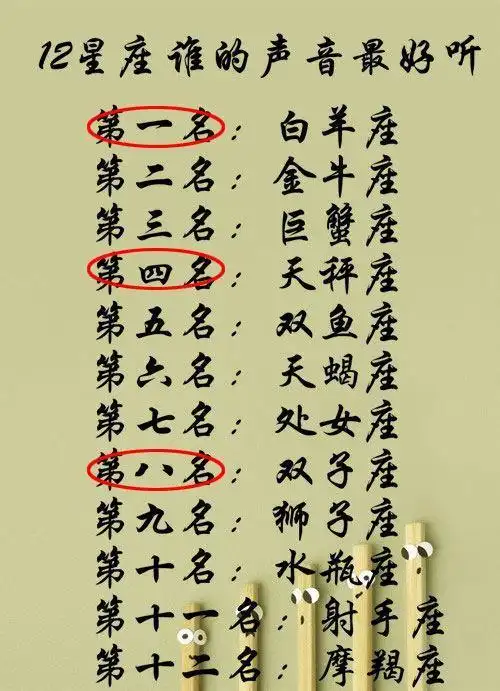 12星座谁的声音最好听
第一名：白羊座
第二名：金牛座
第三名：巨蟹座
第四名：天秤座
第五名：双鱼座
第六名：天蝎座
第七名：处女座
第八名：双子座
第九名：狮子座
第十名：水瓶座
第十一名：射手座
第十二名：摩羯座